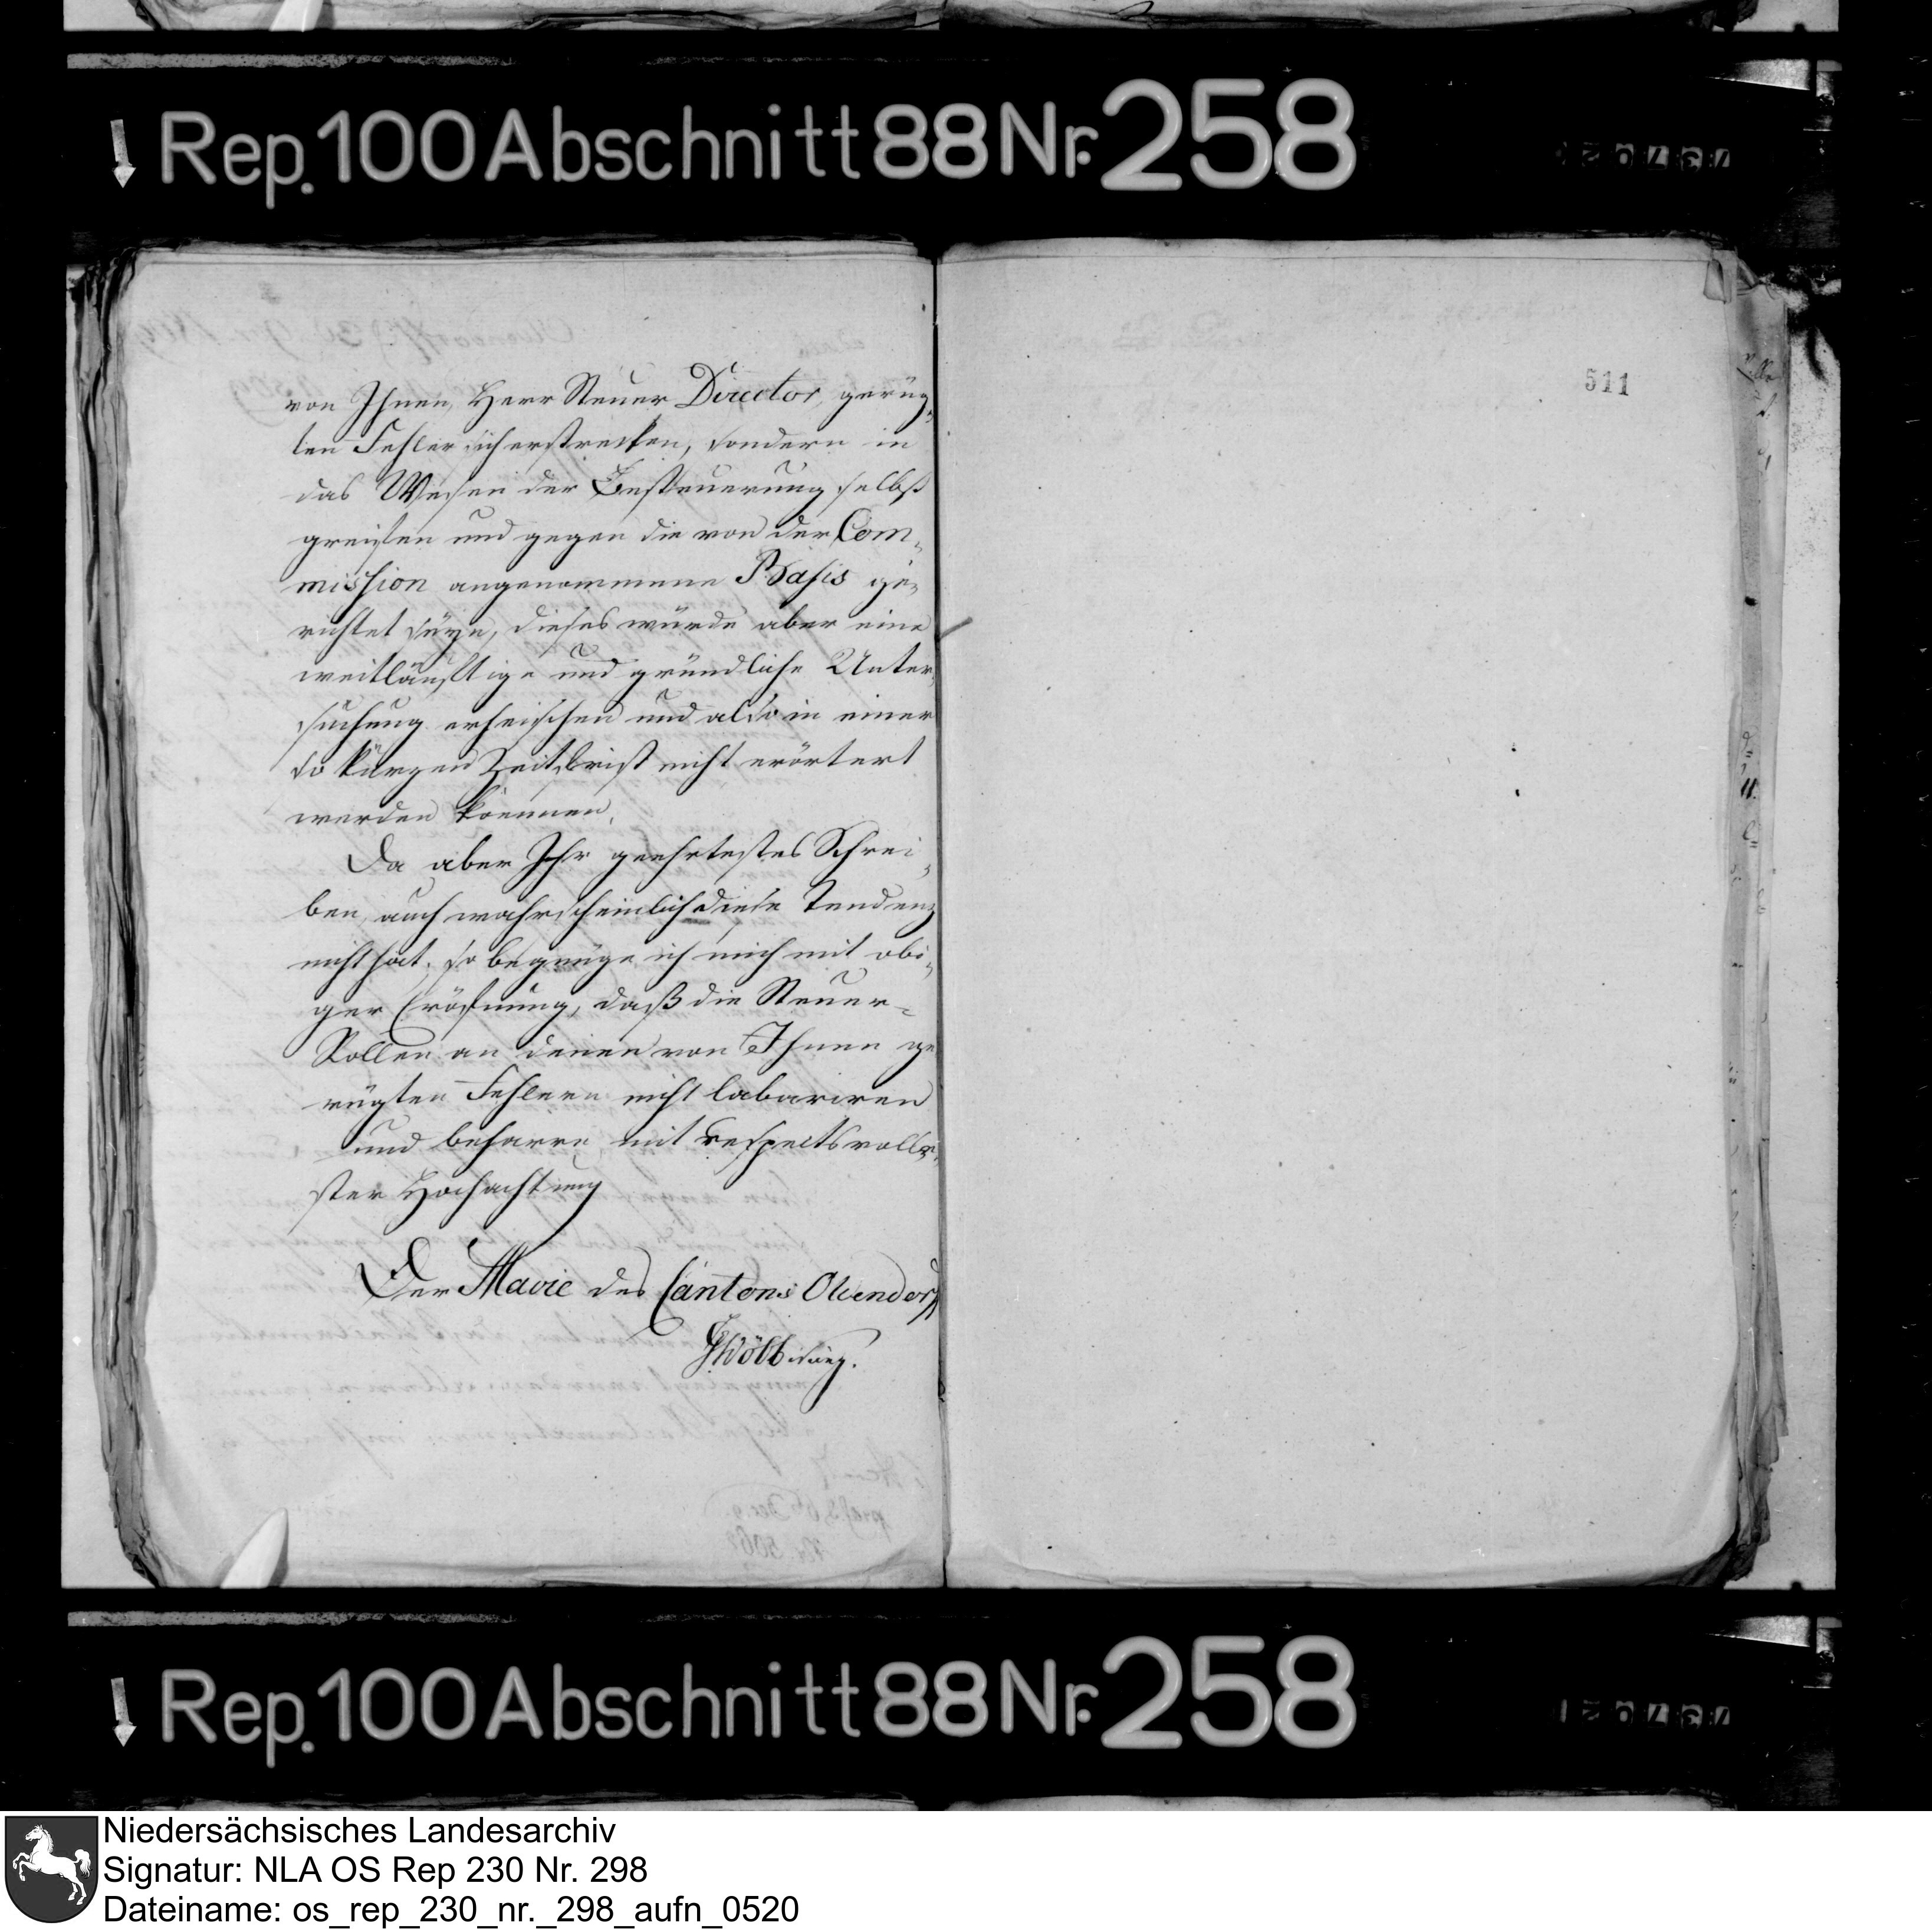 Rep. 100 Abschnitt 88 Nr. 258
511
von Ihnen, Herr Steuer Director, gerüg-
ten Fehler sich erstrecken, sondern in
das Wesen der Besteuerung selbst
greiffen und gegen die von der Com-
mission angenommene Basis ge-
richtet seyn, dieses würde aber eine
weitläuftige und gründliche Unter-
suchung erheischen und also in einer
so kurzen Zeitfrist nicht erörtert
werden koennen.
Da aber Ihr geehrtestes Schrei-
ben, auch wahrscheinlich diese Tendenz
nicht hat, so begnüge ich mich mit obi-
ger Eröfnung, daß die Steuer-
Rollen an denen von Ihnen ge
rügten Fehlern nicht labariren
und beharre mit respectsvolle-
ster Hochachtung
Der Maire des Cantons
Rep. 100 Abschnitt 88 Nr. 258
Niedersächsisches Landesarchiv
Signatur: NLA OS Rep 230 Nr. 298
Dateiname: os_rep_230_nr._298_aufn_0520